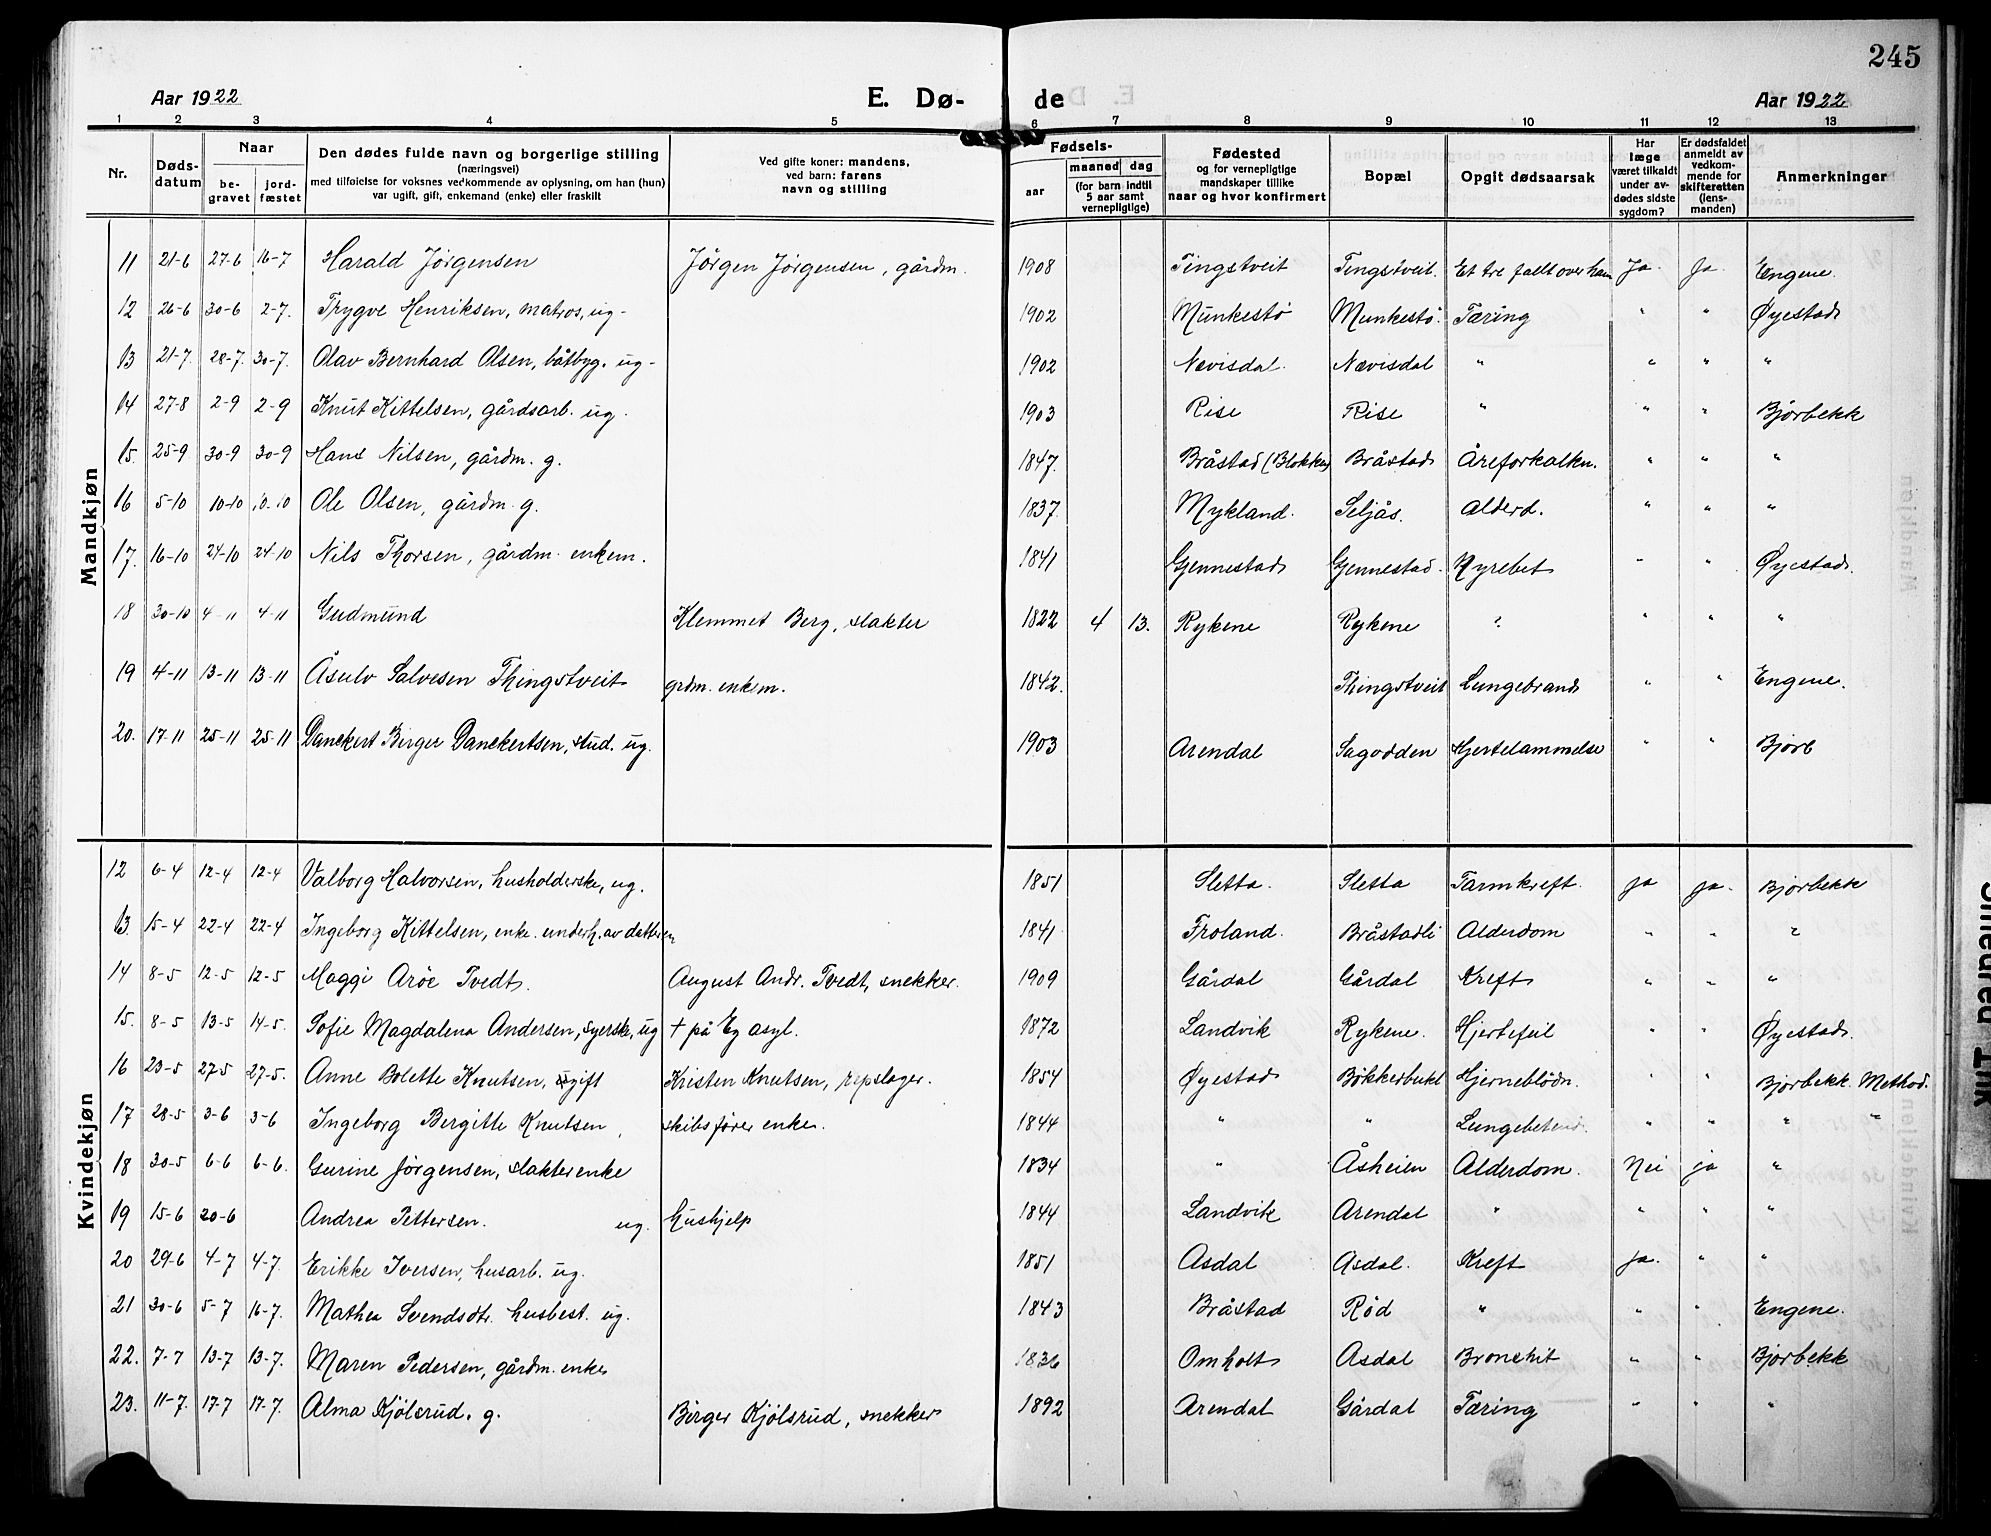 245
Aar 1922 E. Dø- de Aar 1922
1 2 3 4 5 6 7 8 9 10 11 12 13
Nr. Døds-datum Naar be-gravet jord-fæstet Den dødes fulde navn og borgerlige stilling (næringsvei) med tilføielse for voksnes vedkommende av oplysning, om han (hun) var ugift, gift, enkemand (enke) eller fraskilt Ved gifte koner: mandens, ved barn: farens navn og stilling Fødsels- aar maaned dag (for barn indtil 5 aar samt vernepligtige) Fødested og for vernepligtige mandskaper tillike naar og hvor konfirmert Bopæl Opgit dødsaarsak Har læge været tilkaldt under av-dødes sidste sygdom? Er dødsfaldet anmeldt av vedkom-mende for skifteretten (lens-manden) Anmerkninger
Mandkjøn
11 21-6 27-6 16-7 Harald Jørgensen Jørgen Jørgensen, gårdm. 1908 Tingstveit Tingstveit. Et tre faldt over ham Ja. Ja. Engene.
12 26-6 30-6 2-7. Trygve Henriksen, matros, ug- 1902 Munkestø Munkestø. Tæring " " Øyestad
13 21-7. 28-7. 30-7. Olav Bernhard Olsen, båtbyg. ug- 1902 Nævisdal. Nævisdal " " " "
14 27-8 2-9 2-9 Knut Kittelsen, gårdsarb. ug. 1903 Rise Rise " " " Bjorbekk
15. 25-9 30-9 30-9 Hans Nilsen, gårdm. g. 1847. Bråstad (Blokken) Bråstad Åreforkalkn. " " "
16 5-10 10-10 10-10 Ole Olsen, gårdm. g. 1837. Mykland. Seljås. Alderd. " " "
17. 16-10 24-10 24-10 Nils Thorsen, gårdm. enkem. 1841 Gjennestad Gjennestad. Nyrebet " " Øyestad.
18 30-10 4-11 4-11 Gudmund Klemmet Berg, slakter 1822 4 13. Rykene Rykene ? " " "
19 4-11 13-11 13-11 Åsulv Salvesen Thingstveit grdm. enkem. 1842. Thingstveit Lungebrand " " Engene.
20. 17-11 25-11 25-11 Danckert Birger Danckertsen, stud. ug. 1903 Arendal Sagodden Hjertelammelse " " Bjorb
Kvindekjøn
12 6-4 12-4 12-4 Valborg Halvorsen, husholderske, ug. 1851 Sletta. Sletta Tarmkreft. ja ja. Bjorbekk
13. 15-4 22-4 22-4 Ingeborg Kittelsen, enke. underh. av datteren 1841 Froland. Bråstadli Alderdom " " "
14 8-5 12-5 12-5 Maggi Aröe Tvedt. August Andr. Tvedt, snekker. 1909 Gårdal Gårdal Kreft " " "
15. 8-5 13-5 14-5. Sofie Magdalena Andersen, syerske, ug + på Eg asyl. 1872 Landvik Rykene. Hjertefeil " " Øyestad.
16 23-5 27-5 27-5. Anne Bolette Knutsen, gift Kristen Knutsen, repslager. 1854 Øyestad Bökkerbukt Hjerneblödn. " " Bjorbekk. Method.
17 28-5 3-6 3-6 Ingeborg Bergitte Knutsen, skibsfører enke. 1844 " " " " " "
18 30-5 6-6 6-6. Gurine Jørgensen, slakterenke 1834 " Åsheien Alderdom. Nei ja "
19 15-6 20-6 Andrea Pettersen. ug. hushjelp 1844 Landvik Arendal " " " "
20 29-6 4-7 4-7. Erikke Iversen, husarb. ug. 1851 Asdal Asdal. Kreft ja. " "
21 30-6 5-7 16-7. Mathea Svendsdtr. husbest. ug. 1843 Bråstad Röd " " " Engene.
22. 7-7 13-7 13-7. Maren Pedersen, gårdm. enke 1836 Omholt Asdal Bronchit " " Bjorbekk
23. 11-7. 17-7 17-7. Alma Kjölsrud. g. Birger Kjölsrud, snekker 1892 Arendal Gårdal Tæring " " "